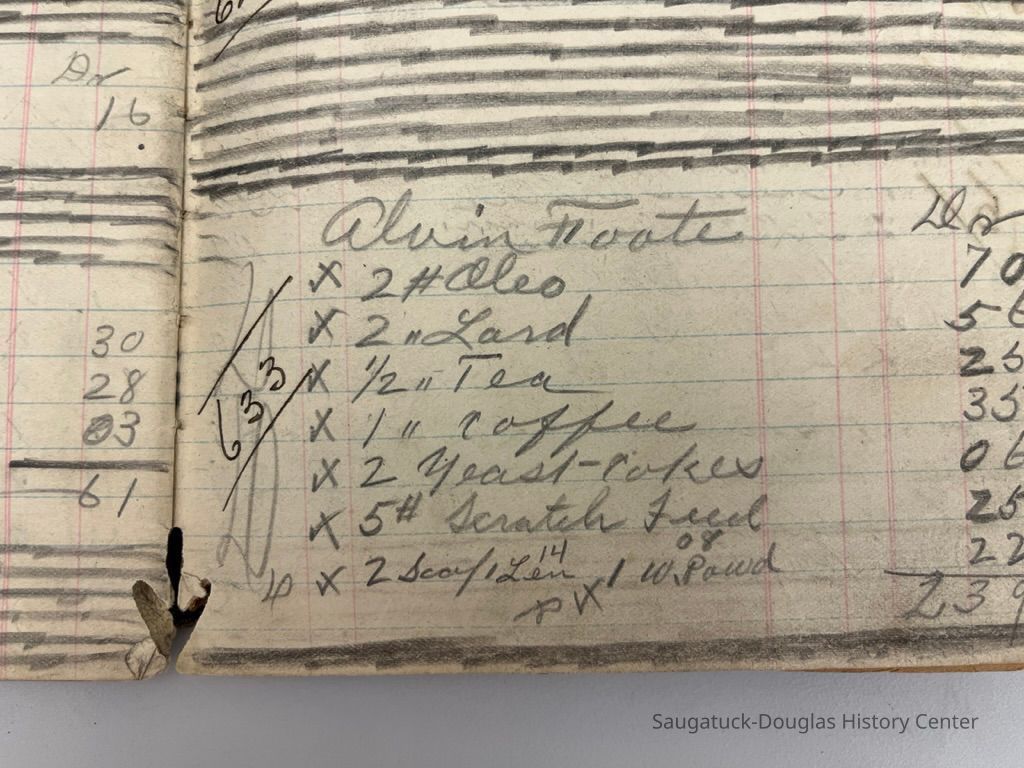 Dr
16
30
28
03
61
Alvin Foote Dr
x 2 # Oleo 70
x 2 " Lard 56
x 1/2 " Tea 25
x 1 " Coffee 35
x 2 Yeast-Cakes 06
x 5# Scratch Feed 25
x 2 Soap 1 Len 14 1 W. Powd 08 22
239
633
Saugatuck-Douglas History Center